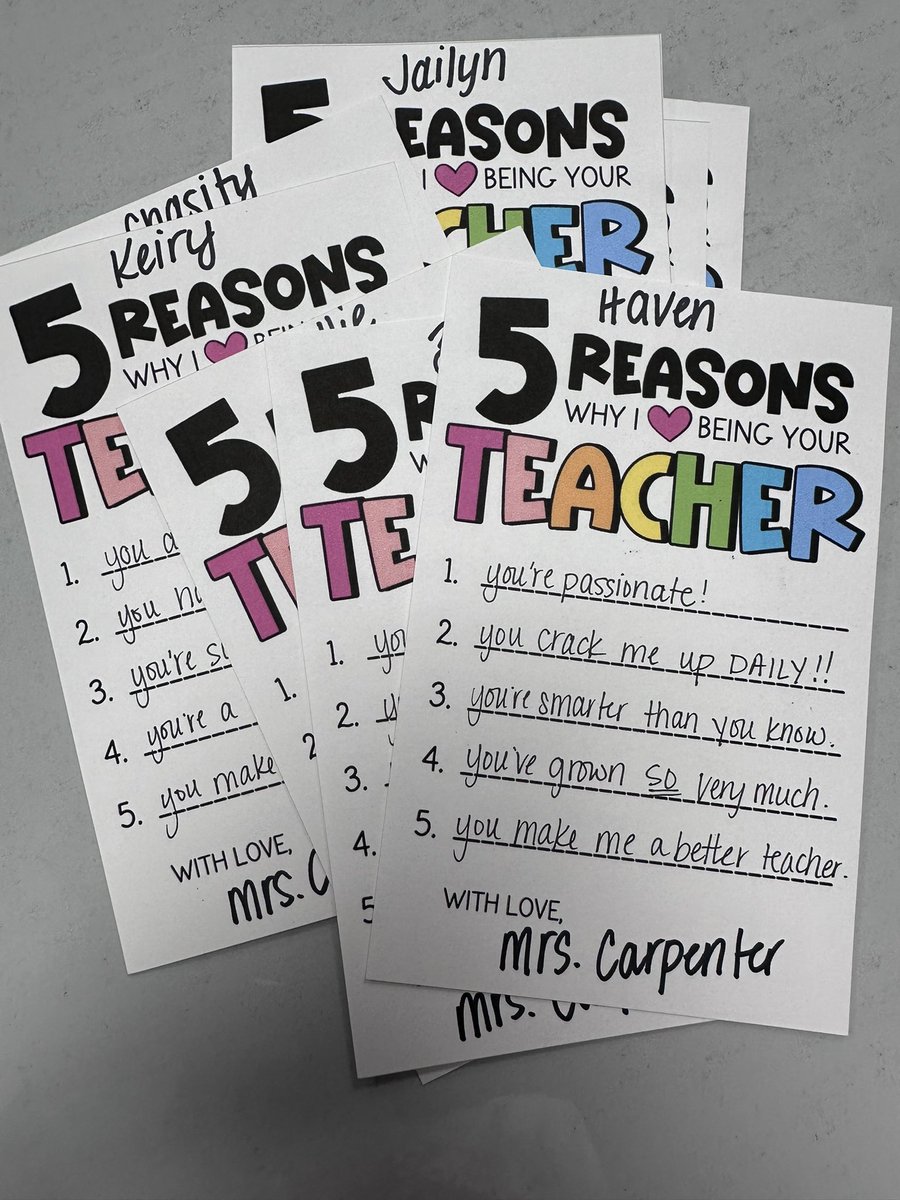 Jailyn
5 REASONS
I BEING YOUR
CHER
Chasity
Keiry
5 REASONS
WHY I BEIN
TE
1. you a
2. you
3. you're
4. you're a
5. you make
WITH LOVE,
Mrs. C
5
TE
1.
2
5
TE
1. you
2.
3.
4.
5
Mrs. Ca
Haven
5 REASONS
WHY I BEING YOUR
TEACHER
1. you're passionate!
2. you crack me up DAILY!!
3. you're smarter than you know.
4. you've grown so very much.
5. you make me a better teacher.
WITH LOVE,
Mrs. Carpenter